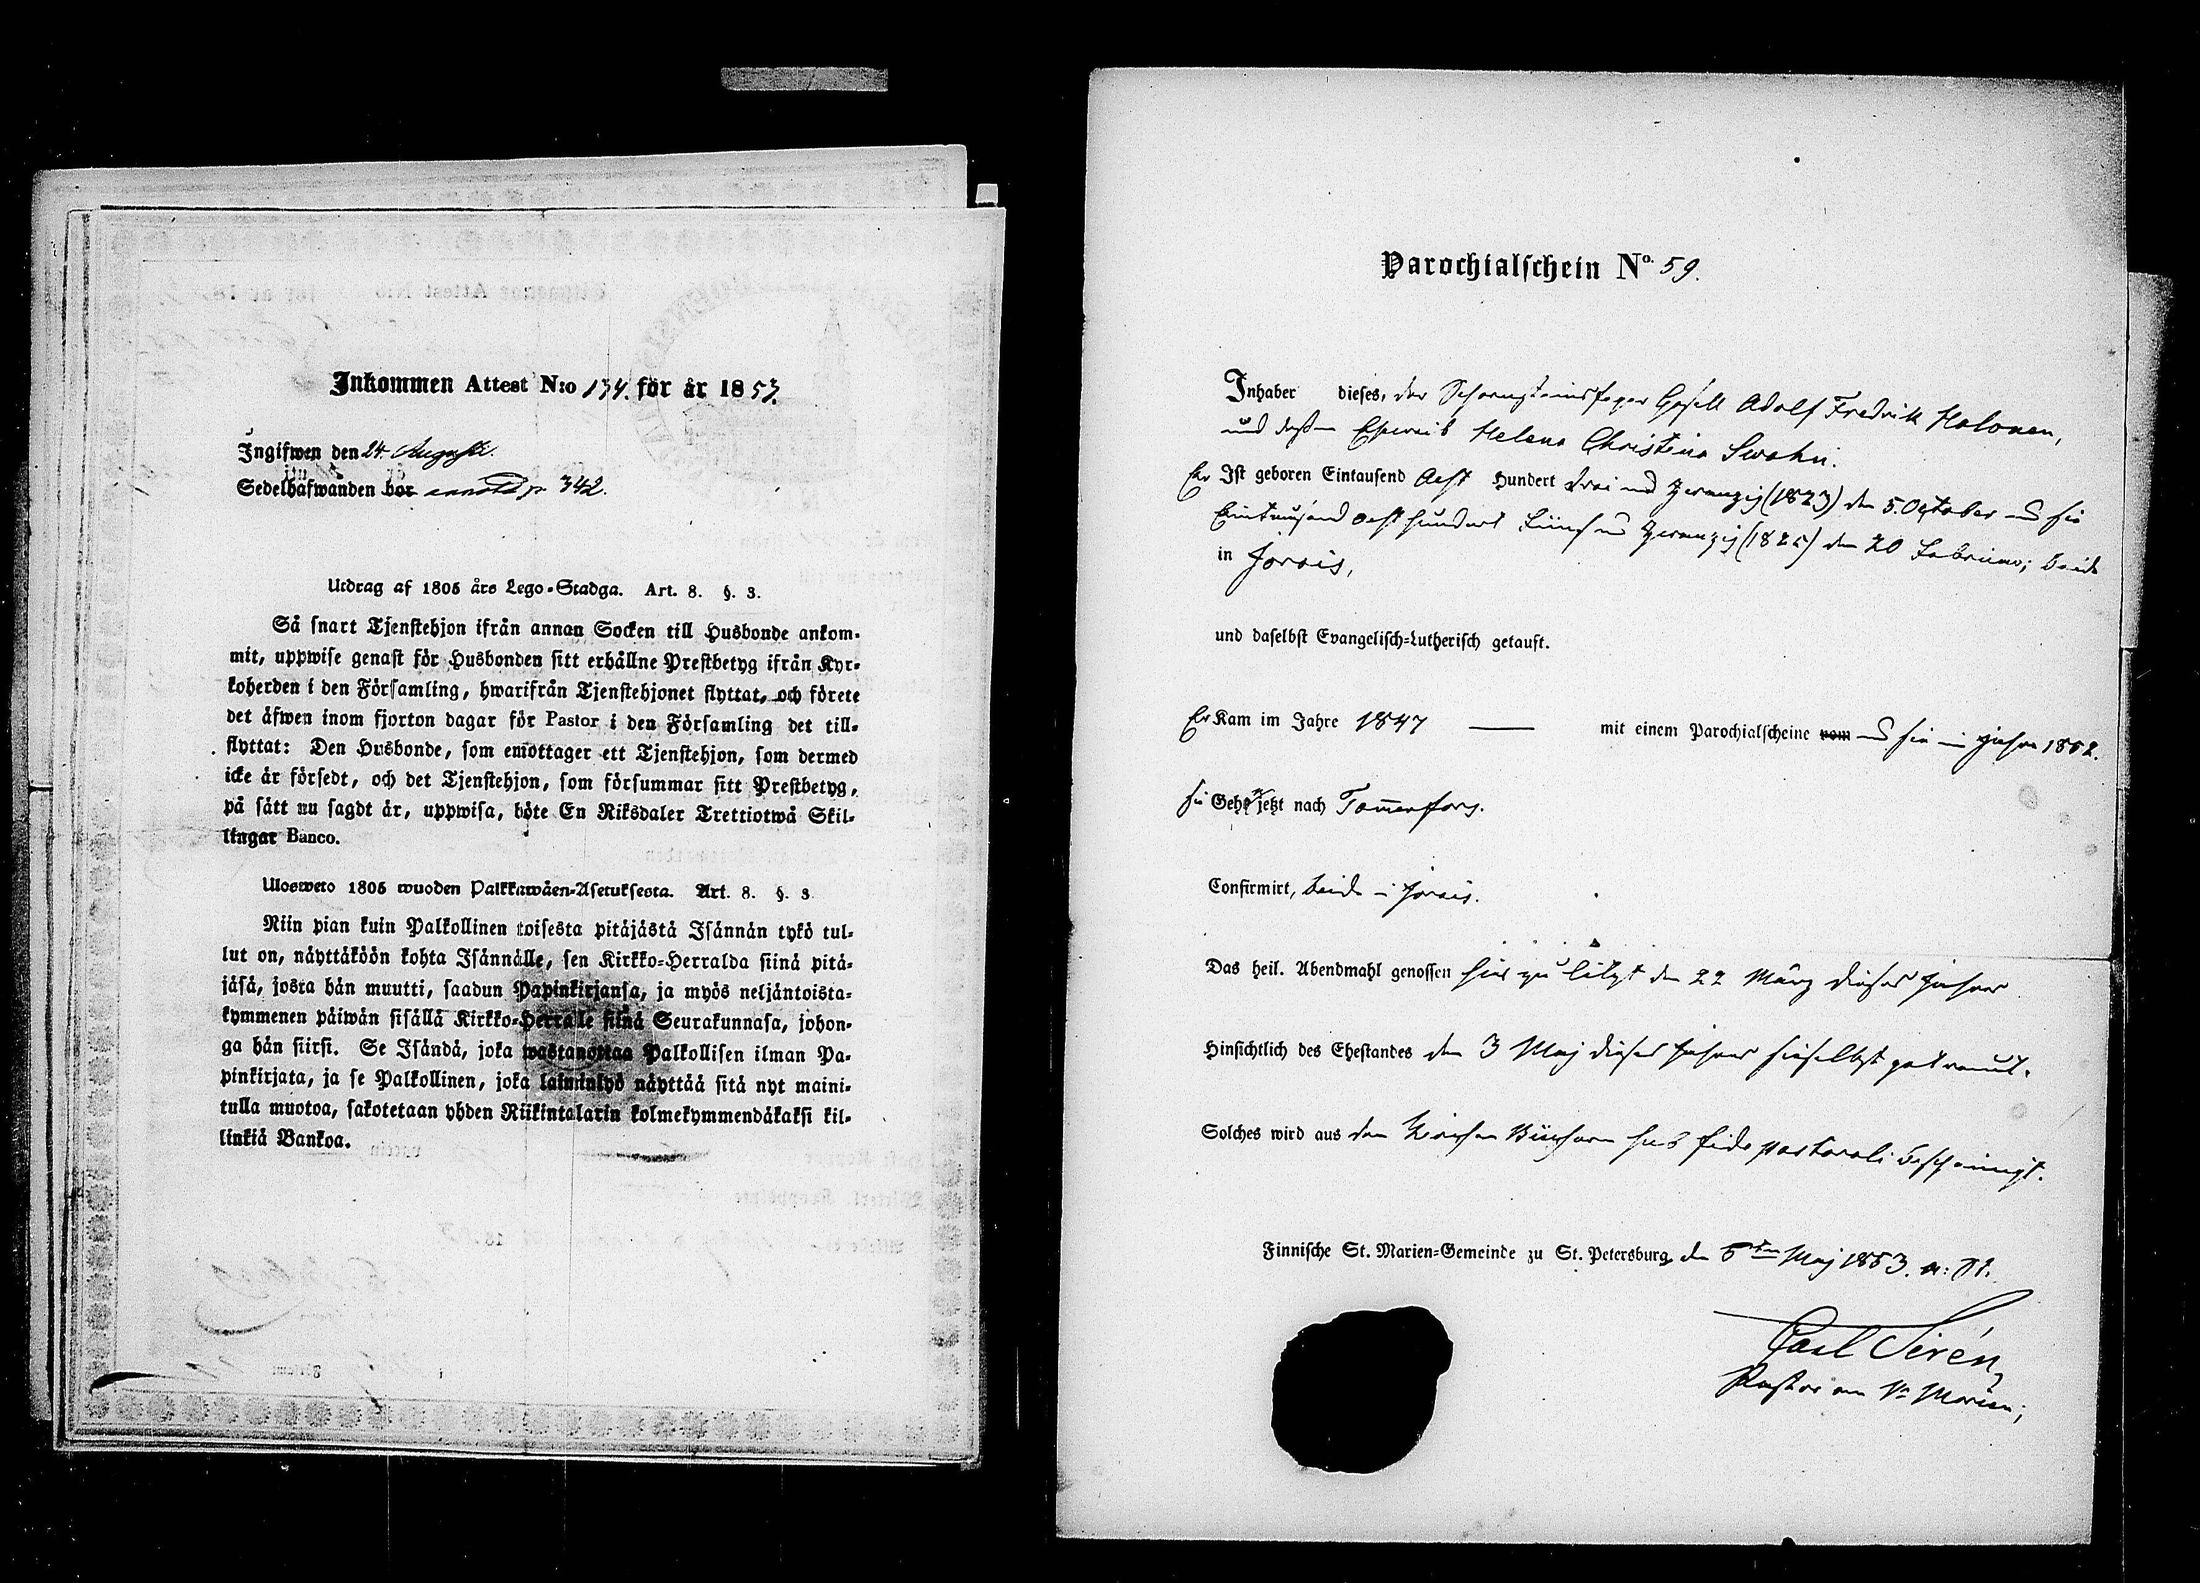 Inkommen Attest N:o 134. för år 1853.
Ingifwen den 24 Augusti.
Sedelhafwanden bor annoterad p. 342.
Utdrag af 1805 års Lego-Stadga. Art. 8. §. 3.
Så snart Tjenstehjon ifrån annan Socken till Husbonde ankom-
mit, uppwise genast för Husbonden sitt erhållne Prestbetyg ifrån Kyr-
koherden i den Församling, hwarifrån Tjenstehjonet flyttat, och förete
det äfwen inom fjorton dagar för Pastor i den Församling det till-
flyttat: Den Husbonde, som emottager ett Tjenstehjon, som dermed
icke är försedt, och det Tjenstehjon, som försummar sitt Prestbetyg,
på sätt nu sagdt är, uppwisa, böte En Riksdaler Trettiotwå Skil-
lingar Banco.
Ulosweto 1805 wuoden Palkkawäen-Asetuksesta. Art. 8. §. 3
Niin pian kuin Palkollinen toisesta pitäjästä Isännän tykö tul-
lut on, näyttäköön kohta Isännälle, sen Kirkko-Herralda siinä pitä-
jäsä, josta hän muutti, saadun Papinkirjansa, ja myös neljäntoista-
kymmenen päiwän sisällä Kirkko-Herralle siinä Seurakunnasa, johon-
ga hän siirsi. Se Isändä, joka wastanottaa Palkollisen ilman Pa-
pinkirjata, ja se Palkollinen, joka laiminlyö näyttää sitä nyt maini-
tulla muotoa, sakotetaan yhden Riikintalarin kolmekymmendäkaksi kil-
linkiä Bankoa.
Parochialschein No. 59.
Inhaber dieses, der Schornsteinfeger Gesell Adolf Fredrik Halonen,
und dessen Eheweib Helena Christina Swahn.
Er Ist geboren Eintausend Acht Hundert drei und zwanzig (1823) den 5. October und sie
Eintausend acht hundert fünf und zwanzig (1825) den 20 Februar; beide
in Jorois,
und daselbst Evangelisch-Lutherisch getauft.
Er Kam im Jahre 1847 — mit einem Parochialscheine vom und sie im Jahre 1852.
sie Gehen jetzt nach Tammerfors.
Confirmirt, beide in Jorois.
Das heil. Abendmahl genossen hier zu letzt den 22 März dieses Jahres
Hinsichtlich des Ehestandes den 3 Maj dieses Jahres hieselbst getraut.
Solches wird aus den Kirchen Büchern sub fide pastorali bescheinigt.
Finnische St. Marien-Gemeinde zu St. Petersburg, den 5ten Maj 1853. a: St.
Carl Sirén,
Pastor an St Marien;